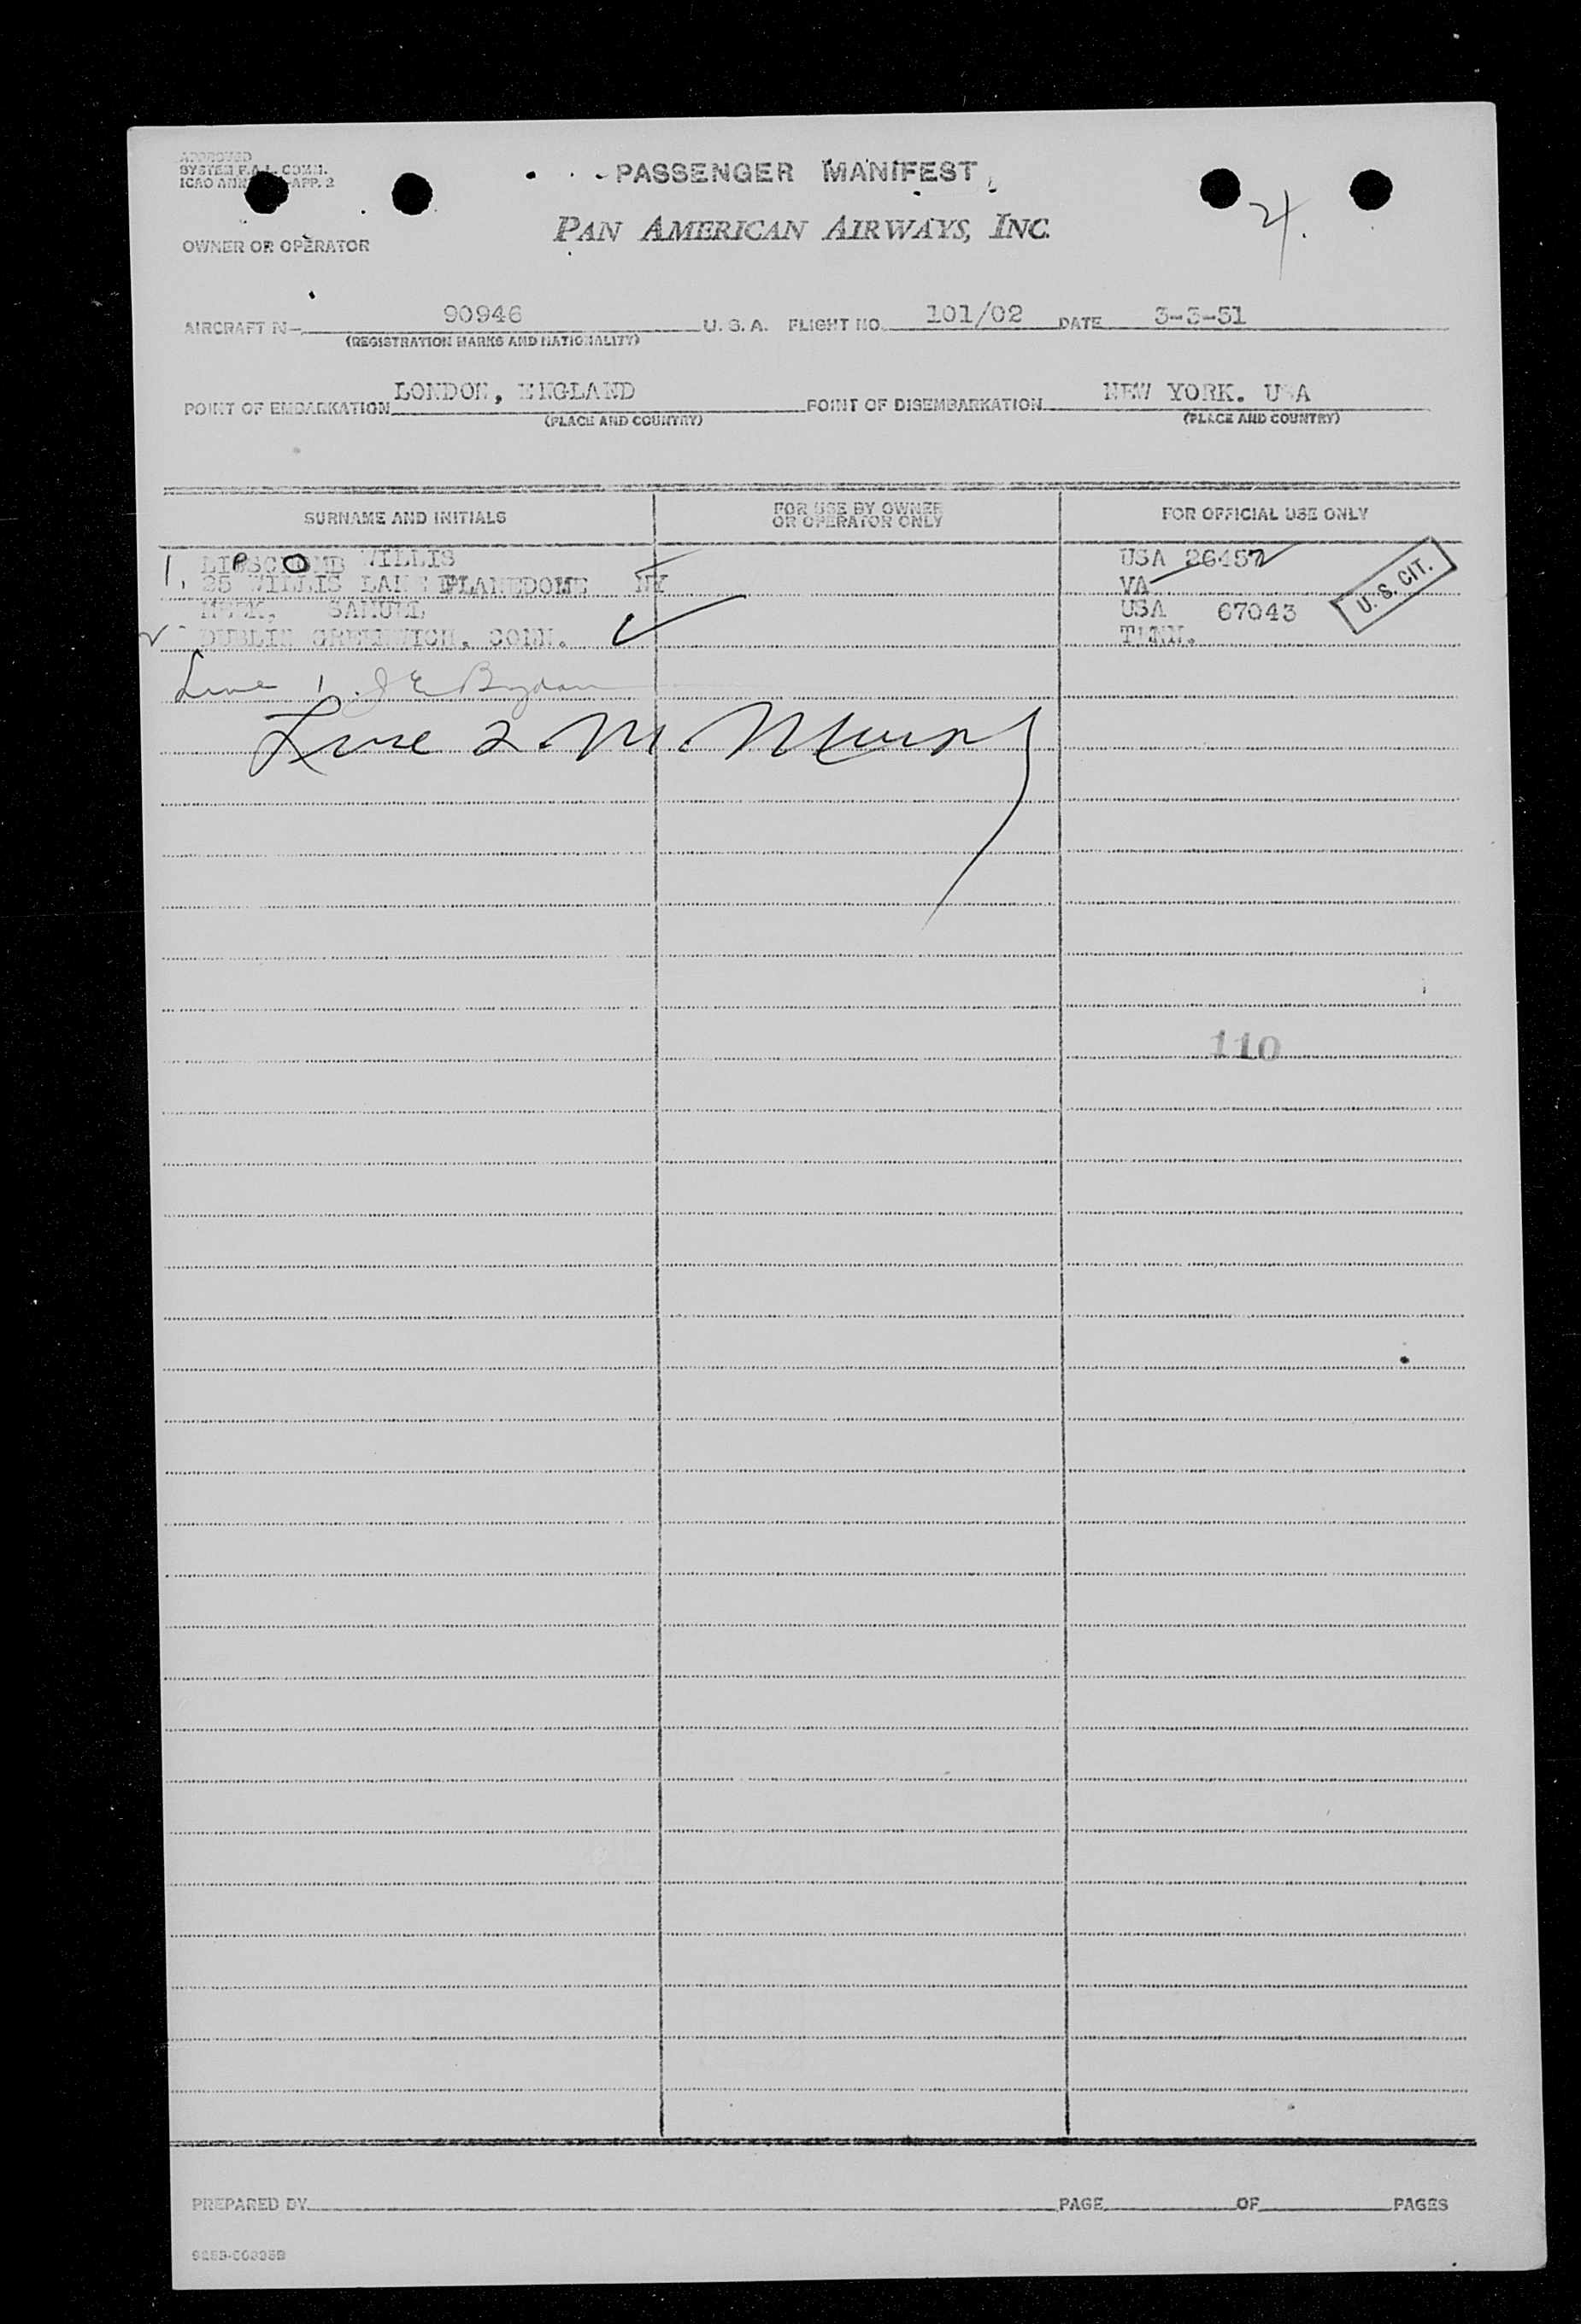 APPROVED
SYSTEM F.A.L. COMM.
ICAO APP. 2
PASSENGER MANIFEST
4.
PAN AMERICAN AIRWAYS, INC.
OWNER OR OPERATOR
AIRCRAFT N- 90946 U. S. A. FLIGHT NO. 101/02 DATE 3-3-51
(REGISTRATION MARKS AND NATIONALITY)
POINT OF EMBARKATION LONDON, ENGLAND POINT OF DISEMBARKATION NEW YORK. USA
(PLACE AND COUNTRY) (PLACE AND COUNTRY)
SURNAME AND INITIALS FOR USE BY OWNER OR OPERATOR ONLY FOR OFFICIAL USE ONLY
1. LIPSCOMB WILLIS USA 26457
25 WILLIS LANE PLANEDOME NY VA
MEEK, SAMUEL USA 67043
DUBLIN GREENWICH, CONN. TENN.
U. S. CIT.
Line 1.
Line 2 M.
110
PREPARED BY PAGE OF PAGES